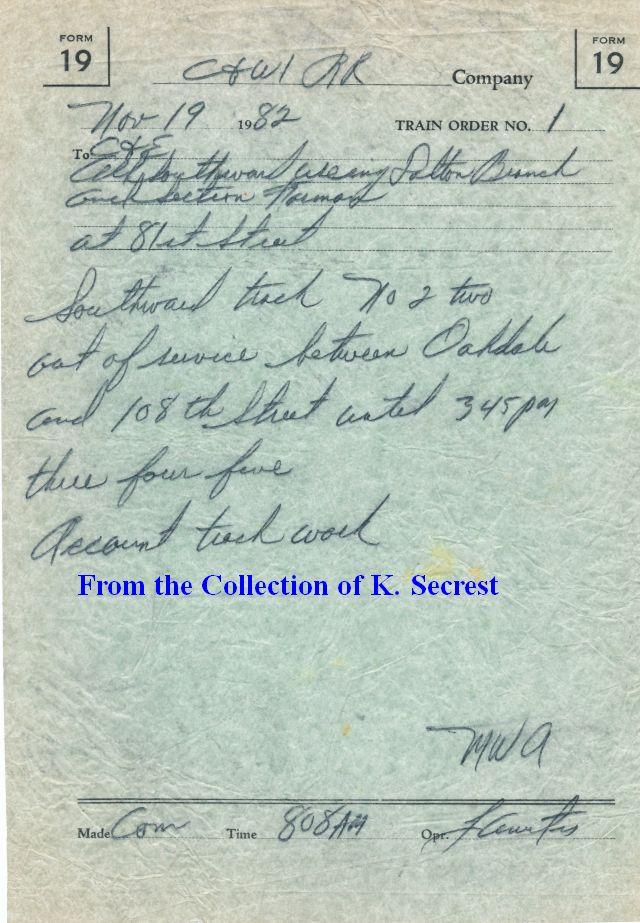 FORM 19
FORM 19
C&WI RR Company
Nov 19 1982 TRAIN ORDER NO. 1
To C&E
All southward using Dalton Branch
and Section Foreman
at 81st Street
Southward track No 2 two
out of service between Oakdale
and 108th Street until 345 pm
three four five
Account track work
From the Collection of K. Secrest
MWA
Made Com Time 808 AM Opr. Curtis